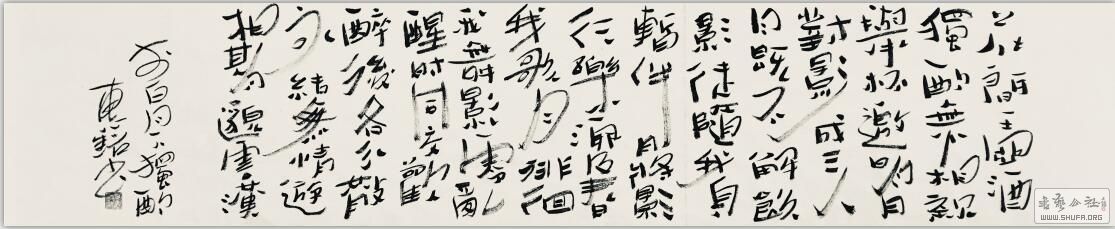 花間一壺酒
獨酌無相親
舉杯邀明月
對影成三人
月既不解飲
影徒隨我身
暫伴月將影
行樂須及春
我歌月徘徊
我舞影零亂
醒時同交歡
醉後各分散
永結無情遊
相期邈雲漢
李白月下獨酌
書藝公社
WWW.SHUFA.ORG